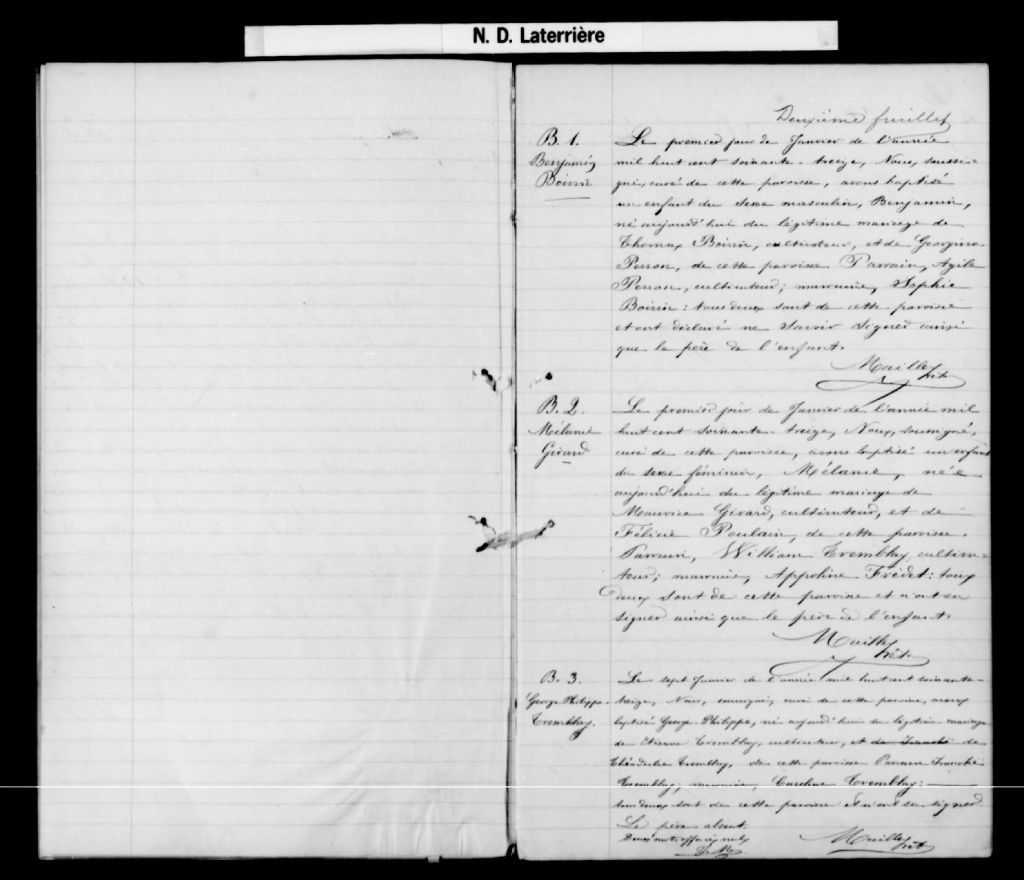 N. D. Laterrière
Deuxième feuillet
B. 1.
Benjamin
Boivin
Le premier jour de Janvier de l'année
mil huit cent soixante-treize, Nous, soussi-
gné, curé de cette paroisse, avons baptisé
un enfant du sexe masculin, Benjamin,
né aujourd'hui du légitime mariage de
Thomas Boivin, cultivateur, et de Georgina
Perron, de cette paroisse. Parrain, Agile
Perron, cultivateur; marraine, Sophie
Boivin: tous deux sont de cette paroisse
et ont déclaré ne savoir signer ainsi
que le père de l'enfant.
Maille ptre
B. 2.
Mélanie
Girard
Le premier jour de Janvier de l'année mil
huit cent soixante-treize, Nous, soussigné,
curé de cette paroisse, avons baptisé un enfant
du sexe féminin, Mélanie, née
aujourd'hui du légitime mariage de
Maurice Girard, cultivateur, et de
Félicité Poulain, de cette paroisse.
Parrain, William Tremblay cultiva-
teur; marraine, Appoline Fradet: tous
deux sont de cette paroisse et n'ont su
signer ainsi que le père de l'enfant.
Maille ptre
B. 3.
George Philippe
Tremblay.
Le sept Janvier de l'année mil huit cent soixante-
treize, Nous, soussigné, curé de cette paroisse, avons
baptisé George-Philippe, né aujourd'hui du légitime mariage
de Etienne Tremblay, cultivateur, et de de
Tremblay, de cette paroisse Parrain
Tremblay; marraine, Caroline Tremblay:
tous deux sont de cette paroisse et n'ont su signer
Le père absent.
Deux mots nuls
Maille ptre